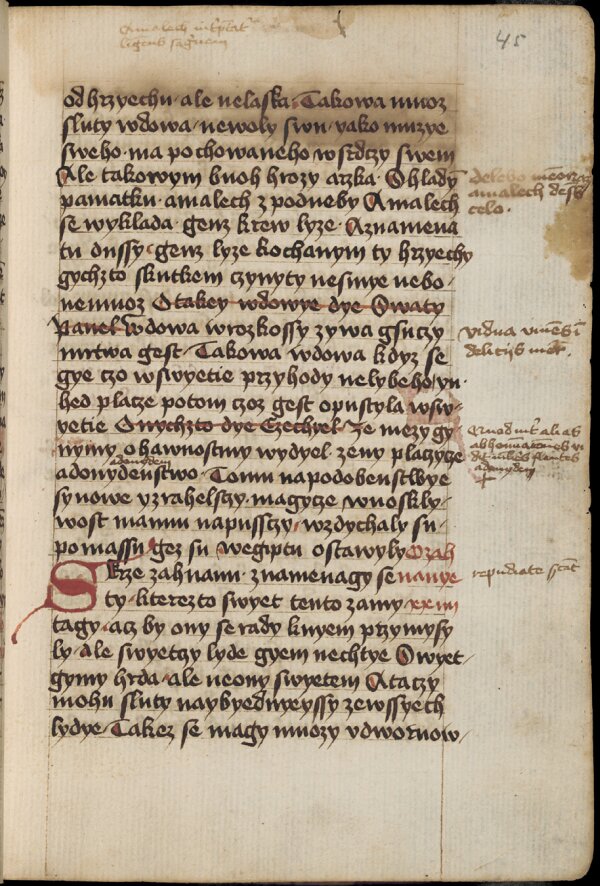 Amalech int'ptat'
ligens sagwinem
45
od hrzyechu · ale nelaska · Takowa muoz
sluty wdowa · newoly swu · yako muzye
sweho · ma pochowaneho wsrdczy swem
Ale takowym buoh hrozy arzka · Shladym
pamatku · amalech zpodneby Amalech
se wyklada · genz krew lyze · Aznamena
tu dussy · genz lyze kochanym ty hrzyechy
gychzto skutkem czynyty nesmye nebo ·
nemuoz Otakey wdowye dye Swaty
Pawel Wdowa wrozkossy zywa gsuczy
mrtwa gest · Takowa wdowa kdyz se
gye czo wswyetie przyhody nelybeho · yn ·
hed placze potom czoz gest opustyla wsw ·
yetie Onychzto dye Ezechyel · Ze mezy gy
nymy ohawnostmy wydyel · zeny placzyce
adonydem
adonydenstwo · Tomu napodobenstwye
synowe yzrahelszy · magycze wnoskly ·
wost mannu napusstzy · wzdychaly su ·
pomassu gez su wegiptu ostawyly Ozah
Skrze zahnani · znamenagy se nanye
ty · kterezto swyet tento zamy · xxiiii
tagy · acz by ony se rady knyem przymysy
ly · Ale swyetczy lyde gyem nechtye Swyet ·
gymy hrda · ale neony swyetem Ataczy
mohu sluty naybyednyeyssy zewssyech
lydye · Takez se magy mnozy vdwornow ·
delebo memoria
amalech de sub
celo ·
vidua viuens i
delicijs mort' .
Quod int' alias
abhominationes vi
dit mulieres flentes
adonydem
repudiate st'